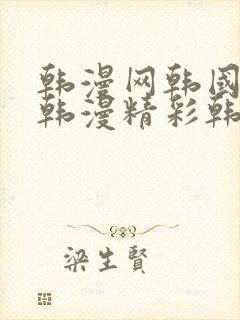 韩漫网韩國
韩漫精彩韩
梁生賢